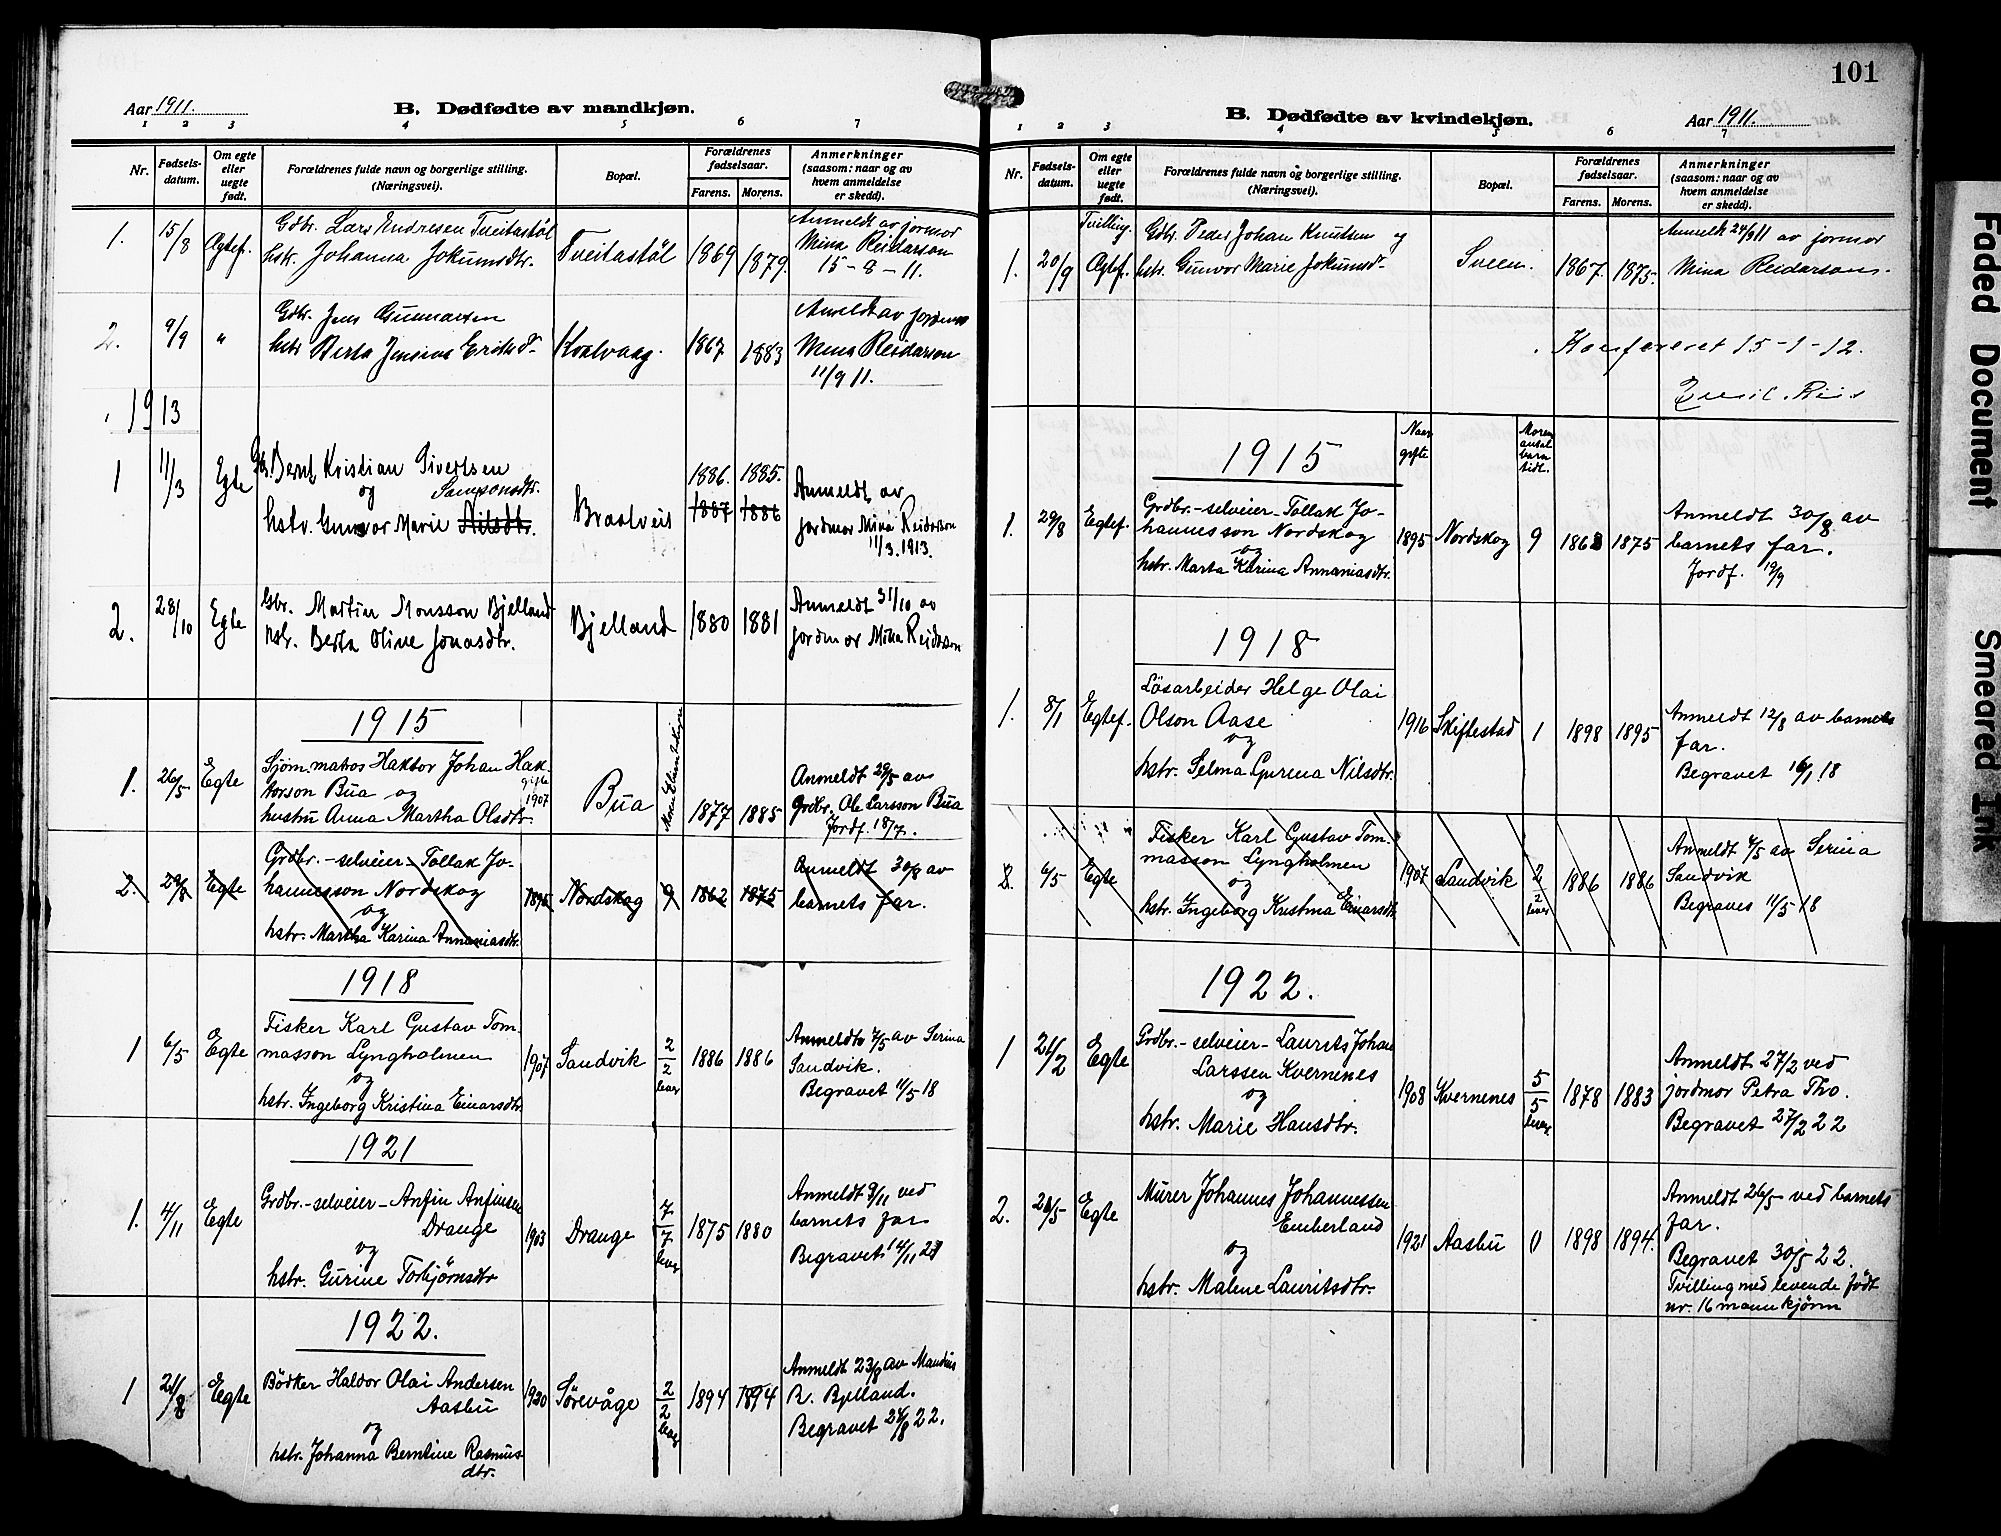 Aar 1911.
B. Dødfødte av mandkjøn.
1 2 3 4 5 6 7
Nr.
Fødsels-
datum.
Om egte
eller
uegte
født.
Forældrenes fulde navn og borgerlige stilling.
(Næringsvei).
Bopæl.
Forældrenes
fødselsaar.
Farens. Morens.
Anmerkninger
(saasom: naar og av
hvem anmeldelse
er skedd).
1. 15/8 Ægtef.
Gdbr. Lars Andresen Tveitastöl
hstr. Johanna Jokumsdtr.
Tveitastöl 1869 1879.
Anmeldt av jormor
Mina Reidarson
15-8-11.
2. 9/9 "
Gdbr. Jens Gunnarsen
hstr Berta Jensine Eriksd-
Kvalvaag. 1867 1883
Anmeldt av jordmor
Mina Reidarson
11/9 11.
1913
1 11/3 Egte
Gbr. Bernt Kristian Sivertsen
og Samsonsdtr.
hstr. Gunvor Marie Nilsdtr.
Braatveit
1886. 1885.
1887 1886
Anmeldt av
jordmor Mina Reidarson
11/3.1913.
2. 28/10 Egte
Gbr. Martin Monsson Bjelland
hstr. Berta Oline Jonasdtr.
Bjelland 1880 1881
Anmeldt 31/10 av
jordmor Mina Reidarson
1915
1. 26/5 Egte
Sjöm. matros Haktor Johan Hak-
torson Bua og
hustru Anna Martha Olsdtr.
gifte
1907
Bua
1877 1885
Anmeldt 29/5 av
Grdbr. Ole Larsson Bua
Jordf. 18/7.
2. 29/8 Egte
Grdbr.-selveier-Tollak Jo-
hannesson Nordskog
og
hstr. Martha Karina Annaniasdtr.
1895 Nordskog 9 1862 1875
Anmeldt 30/8 av
barnets far.
1918
1 6/5 Egte
Fisker Karl Gustav Tom-
masson Lyngholmen
og
hstr. Ingeborg Kristina Einarsdtr.
1907 Sandvik 2/2 lever 1886 1886
Anmeldt 7/5 av Serina
Sandvik.
Begravet 11/5 18
1921
1. 4/11 Egte
Grdbr.-selveier-Anfin Anfinsen
Drange
og
hstr. Gurine Torbjørnsdtr
1903 Drange 7/7 lever 1875 1880
Anmeldt 9/11 ved
barnets far
Begravet 14/11 21
1922.
1 21/8 Egte
Bödker Haldor Olai Andersen
Aasbu
og
hstr. Johanna Berntine Rasmus-
dtr.
1920 Sørevåge 2/2 1894 1894
Anmeldt 23/8 av Mandius
R. Bjelland.
Begravet 24/8 22.
101
B. Dødfødte av kvindekjøn.
Aar 1911.
1 2 3 4 5 6 7
Nr.
Fødsels-
datum.
Om egte
eller
uegte
født.
Forældrenes fulde navn og borgerlige stilling.
(Næringsvei).
Bopæl.
Forældrenes
fødselsaar.
Farens. Morens.
Anmerkninger
(saasom: naar og av
hvem anmeldelse
er skedd).
1. 20/9 Tvilling. Ægtef.
Gdbr. Peder Johan Knutsen og
hstr. Gunvor Marie Jokumsd-
Sveen. 1867. 1875.
Anmeldt 24/9 11 av jormor
Mina Reidarson.
Konfereret 15-1-12.
1915
Naar
gifte
Morens
antal
barn
tidl.
1. 29/8 Egtef.
Grdbr.-selveier-Tollak Jo-
hannesson Nordskog
og
hstr. Marta Karina Annaniasdtr.
1895 Nordskog 9 1862 1875
Anmeldt 30/8 av
barnets far.
Jordf. 19/9
1918
1. 8/1 Egtef.
Lösarbeider Helge Olai
Olson Aase
og
hstr. Selma Gurina Nilsdtr.
1916 Skiftestad 1 1898 1895
Anmeldt 12/8 av barnets
far.
Begravet 16/1 18
2. 6/5 Egte
Fisker Karl Gustav Tom-
masson Lyngholmen
og
hstr. Ingeborg Kristina Einarsdtr.
1907 Sandvik 2/2 lever 1886 1886
Anmeldt 7/5 av Serina
Sandvik
Begraves 11/5 18
1922.
1 21/2 Egte
Grdbr.-selveier-Laurits Johan
Larssen Kvernenes
og
hstr. Marie Hansdtr.
1908 Kvernenes 5/5 lever 1878 1883
Anmeldt 27/2 ved
jordmor Petra Tho.
Begravet 27/2 22
2. 21/5 Egte
Murer Johannes Johannessen
Emberland
og
hstr. Malene Lauritsdtr.
1921 Aasbu 0 1898 1894.
Anmeldt 26/5 ved barnets
far.
Begravet 30/5 22.
Tvilling med levende født
nr. 16 mannkjønn
Faded Document
Smeared Ink